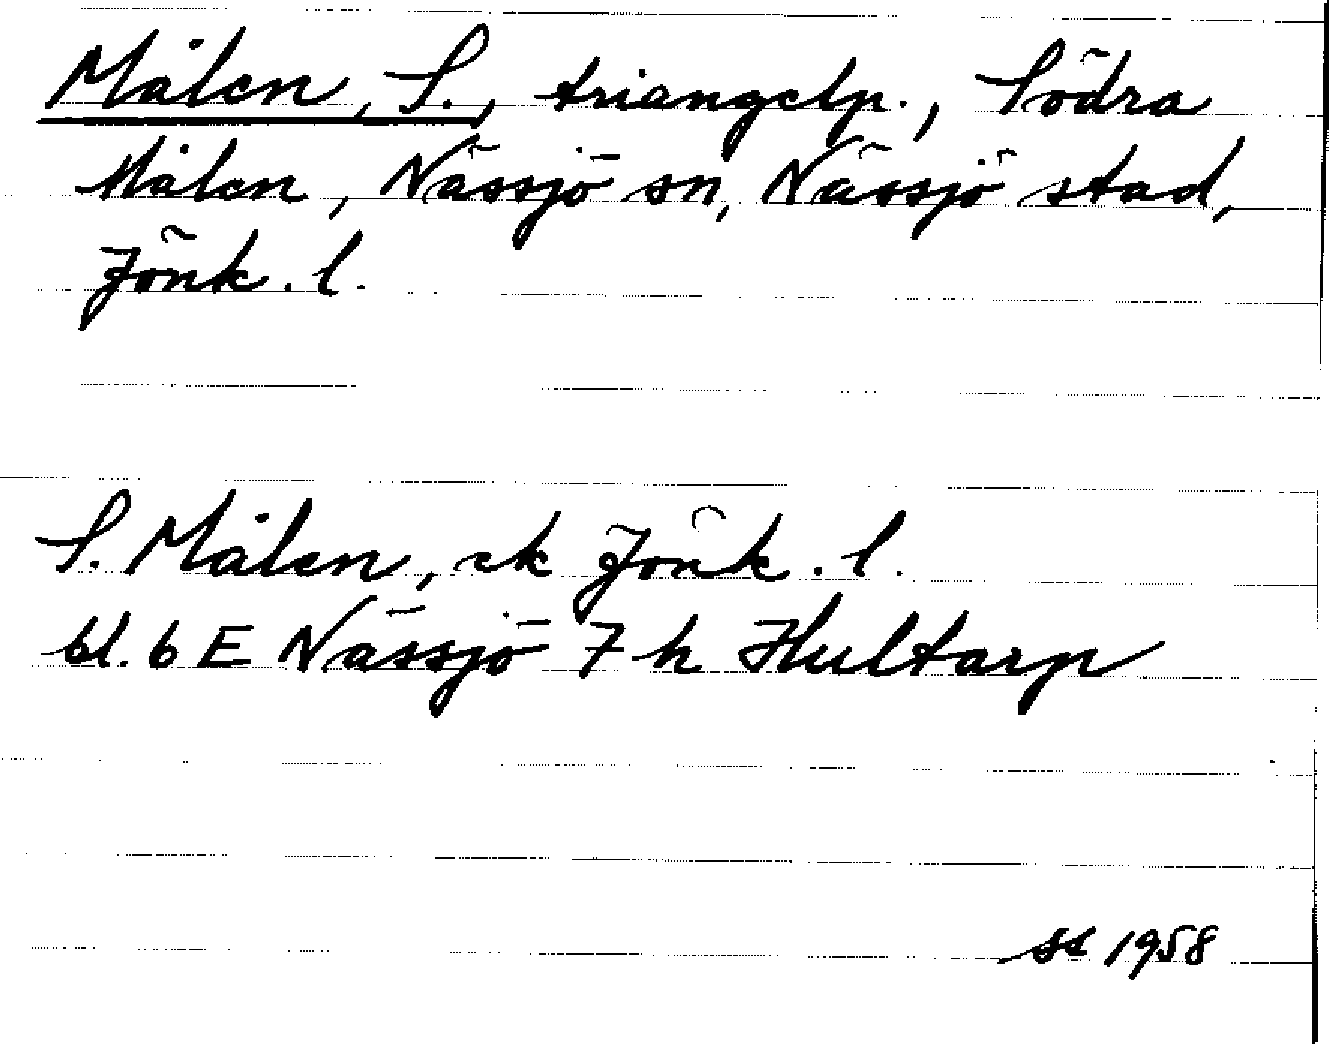 Målen, S., triangelp., Södra
Målen, Nässjö sn, Nässjö stad,
Jönk. l.
S. Målen, ek Jönk. l.
bl. 6 E Nässjö 7 h Hultarp
1958